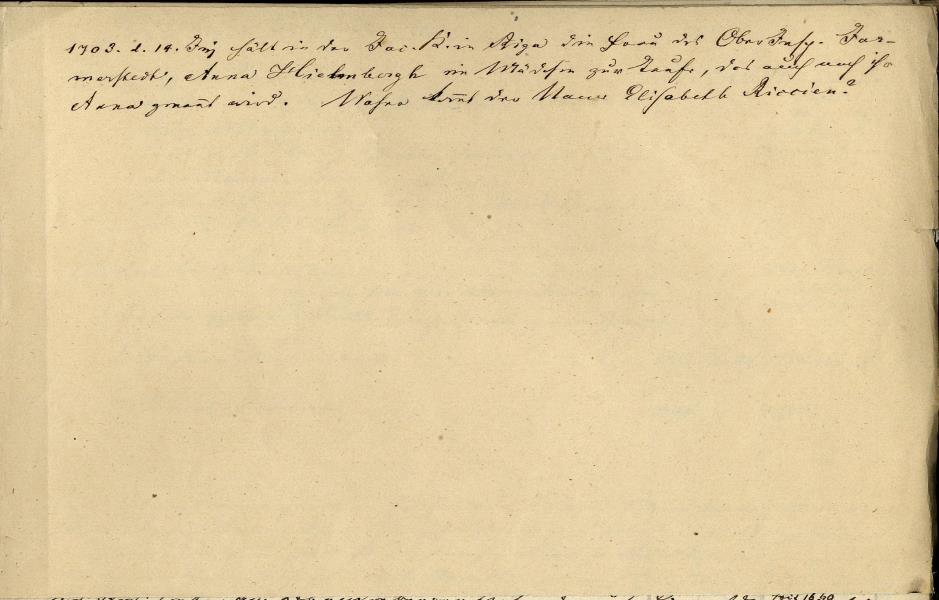 1703. d. 14. Juni hält in der Jac. K. in Riga die Frau des Ober Insp. Jar-
merstedt, Anna Hielmborgh ein Mädchen zur Taufe, das auch nach ihr
Anna genannt wird. Woher kommt der Name Elisabeth Riccien?